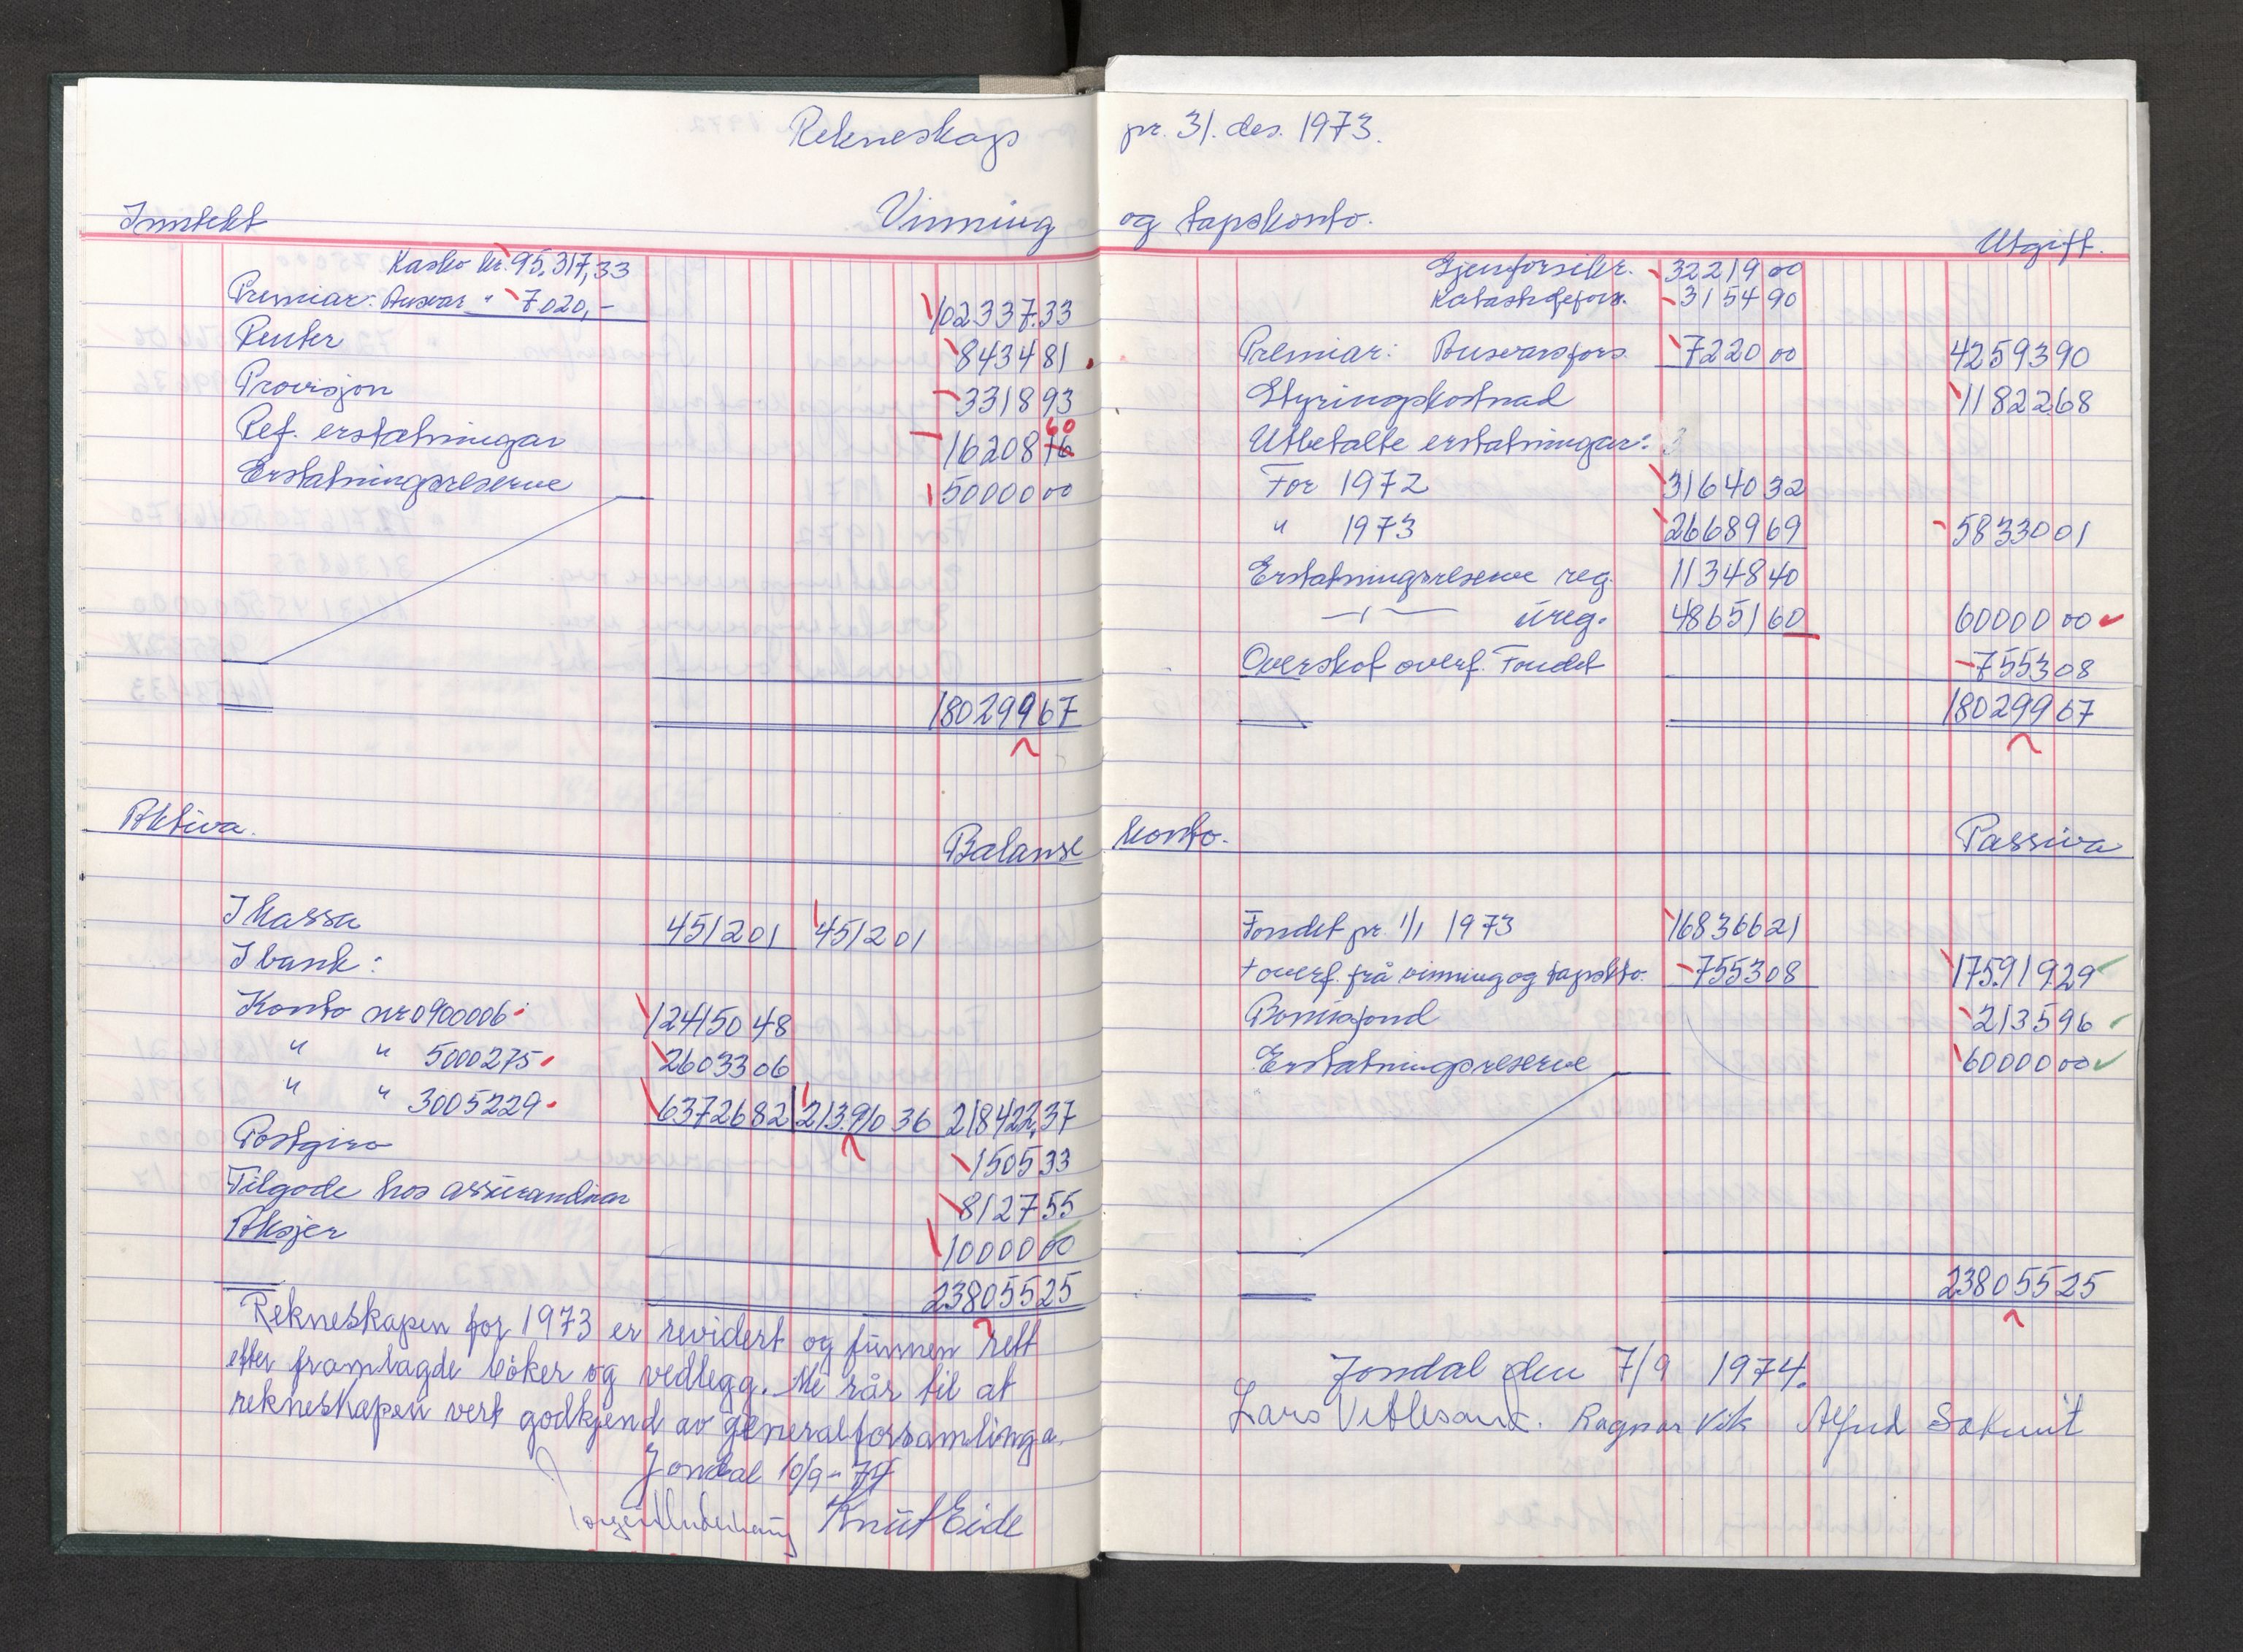 Rekneskap
Inntekt Vinning
Kasko kr. 95.317,33
Premiar: Ansvar " 7020,- 102337.33
Renter 8434 81
Provisjon 3318 93
60
Ref. erstatningar 16208 76
Erstatningsreserve 50000 00
180299 67
Aktiva. Balanse
I kassa 4512 01 4512 01
I bank:
Konto nr 0900006 124150 48
" " 5000275 26033 06
" " 3005229 63726 82 213.910 36 218422,37
Postgiro 1505 33
Tilgode hos assurandørar 8127 55
Aksjer 10000 00
238055 25
Rekneskapen for 1973 er revidert og funnen rett
etter framlagde bøker og vedlegg. Me rår til at
rekneskapen vert godkjend av generalforsamlinga.
Jondal 10/9-74
Knut Eide
pr. 31. des. 1973.
og tapskonto. Utgift.
Gjenforsikr. 32219 00
Katastrofefors. 3154 90
Premiar: Ansvarsfors. 7220 00 42593 90
Styringskostnad 11822 68
Utbetalte erstatningar:
For 1972 31640 32
" 1973 26689 69 58330 01
Erstatningsreserve reg. 11348 40
—"— ureg. 48651 60 60000 00
Overskot overf. Fondet 7553 08
180299 67
konto. Passiva
Fondet pr. 1/1 1973 168366 21
+ overf. frå vinning og tapskto. 7553 08 175.919.29
Bonusfond 2135 96
Erstatningsreserve 60000 00
238055 25
Jondal den 7/9 1974.
Lars Ragnar Vik Alfred